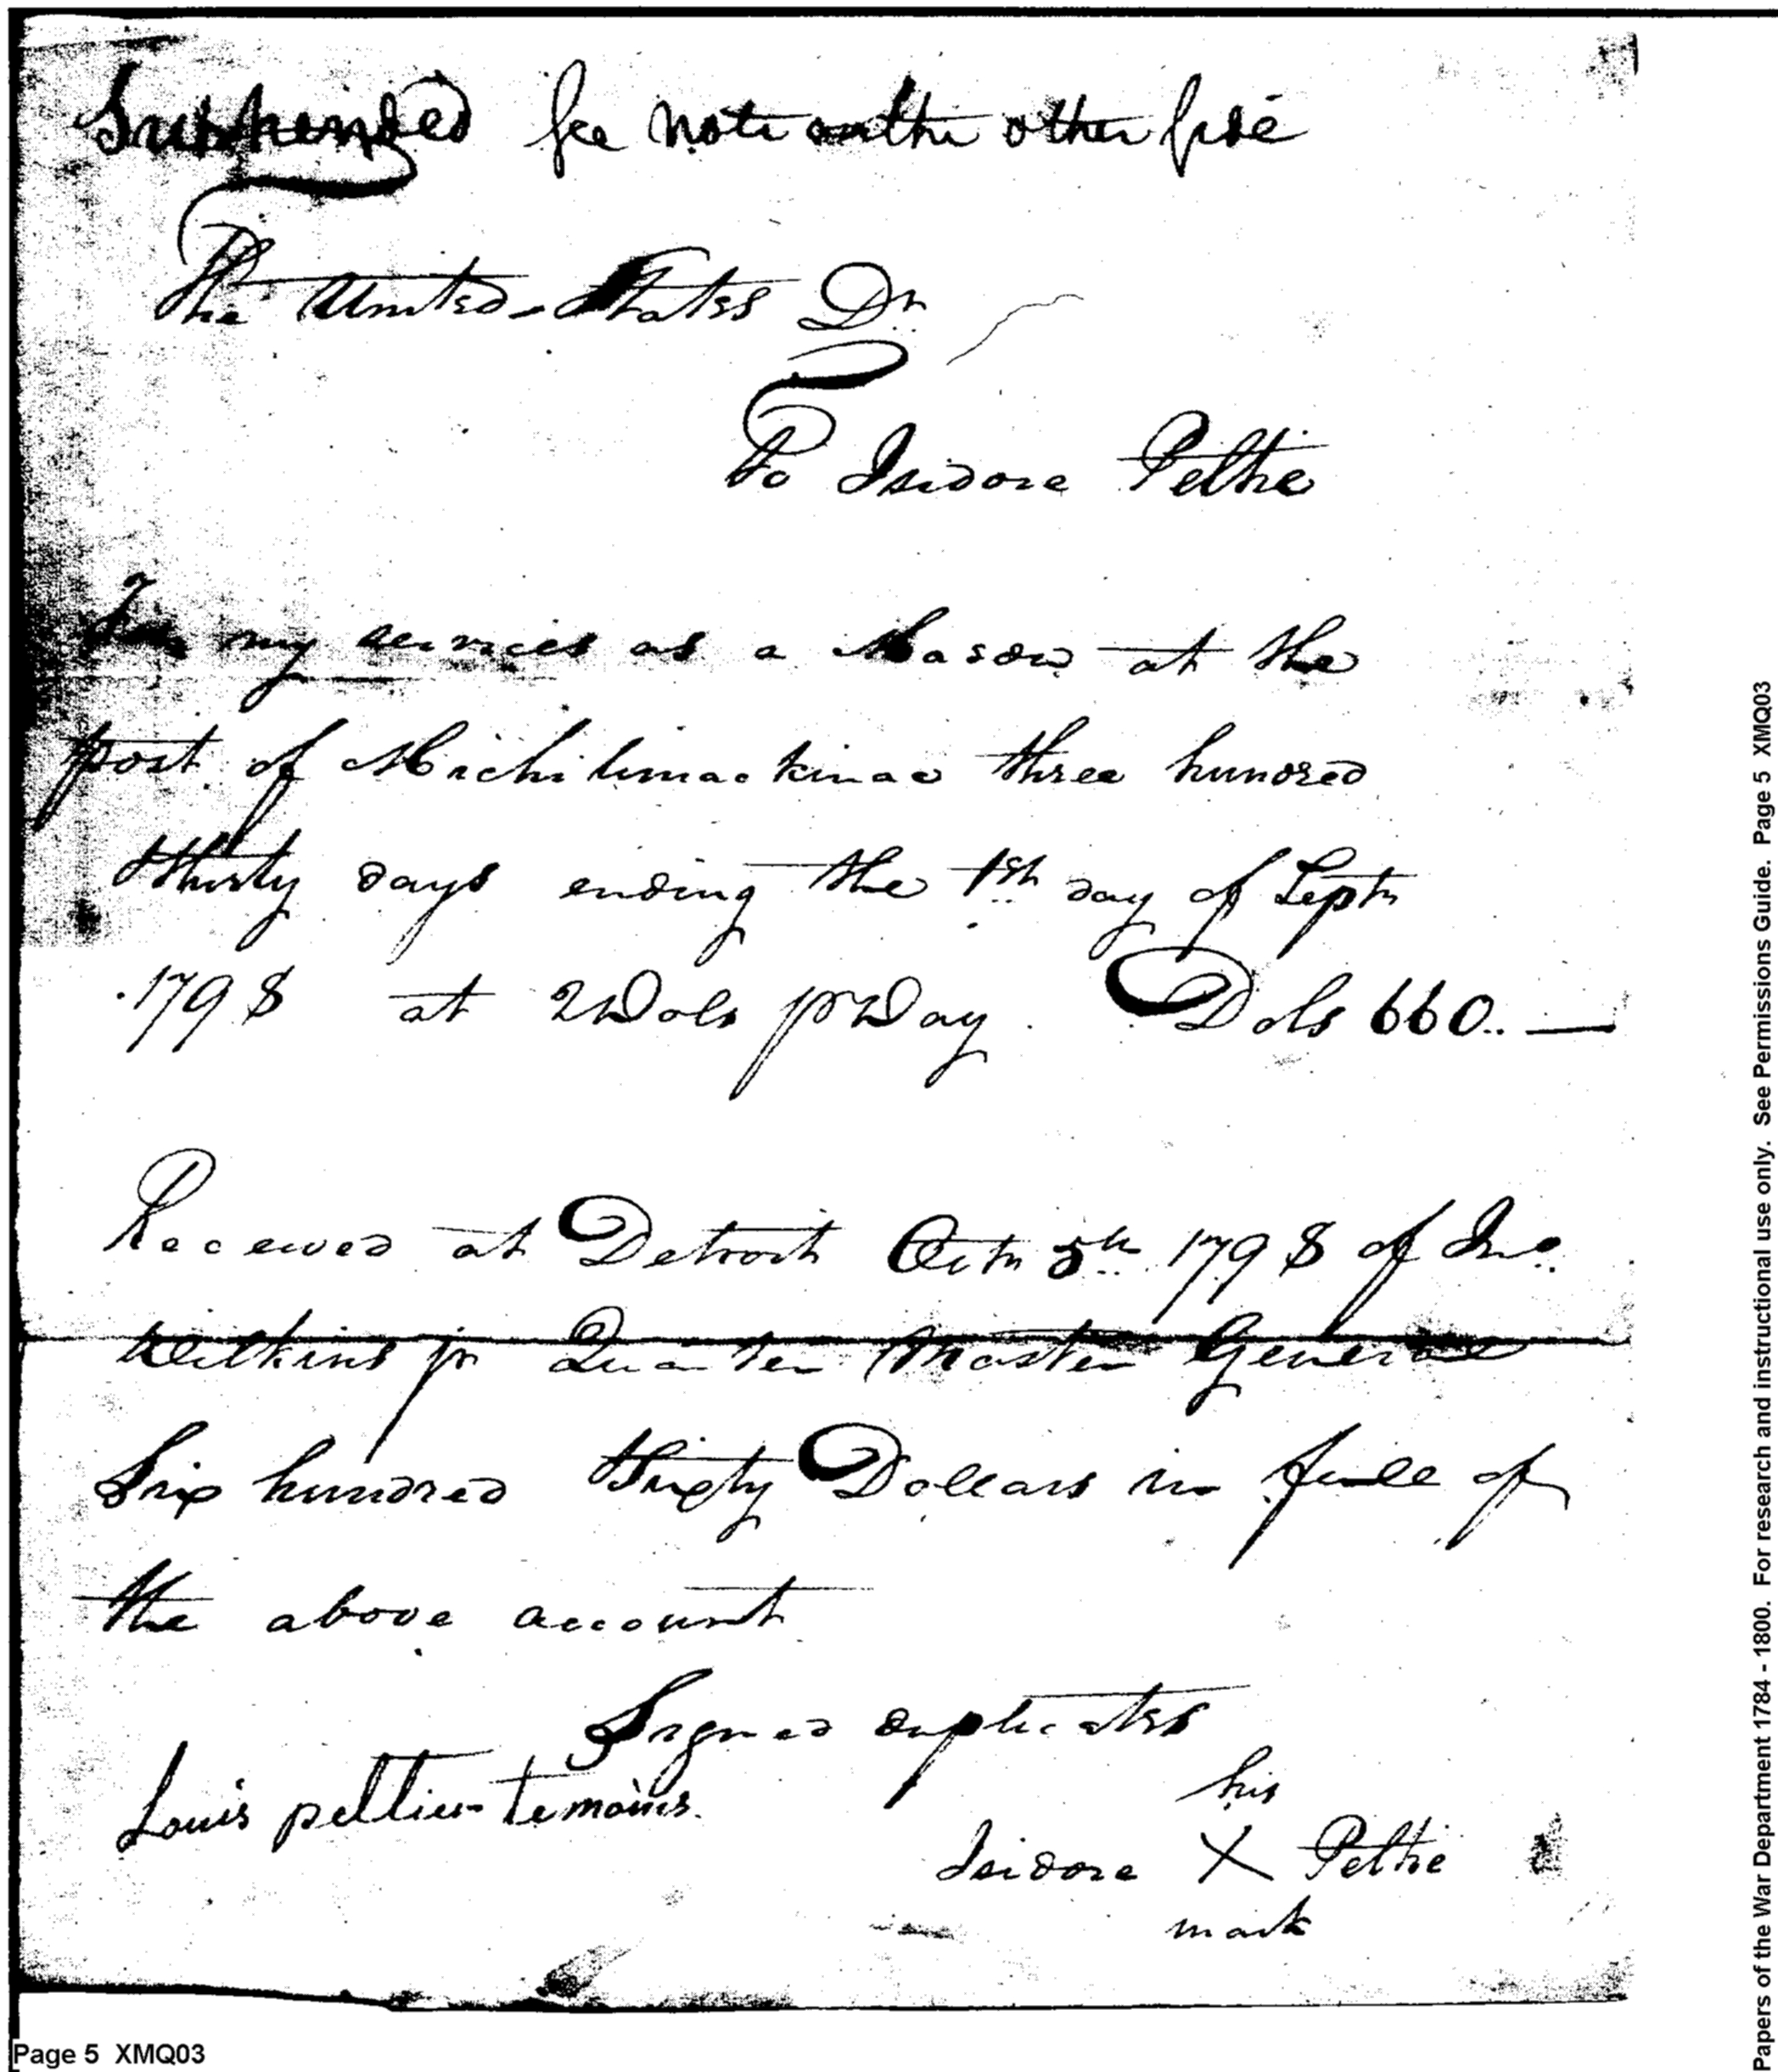 Suspended see note on the other side
The United States Dr
To Isidore Peltie
For my services as a Mason at the
post of Michilimackinac three hundred
thirty days ending the 1st day of Septr
1798 at 2 Dols pr Day. Dols 660..—
Received at Detroit Octr 5th 1798 of Jno.
Wilkins jr Quarter Master General
Six hundred Sixty Dollars in full of
the above account
Signed duplicates
Louis peltier temoins.
his
Isidore X Peltie
mark
Page 5 XMQ03
Papers of the War Department 1784 - 1800. For research and instructional use only. See Permissions Guide. Page 5 XMQ03